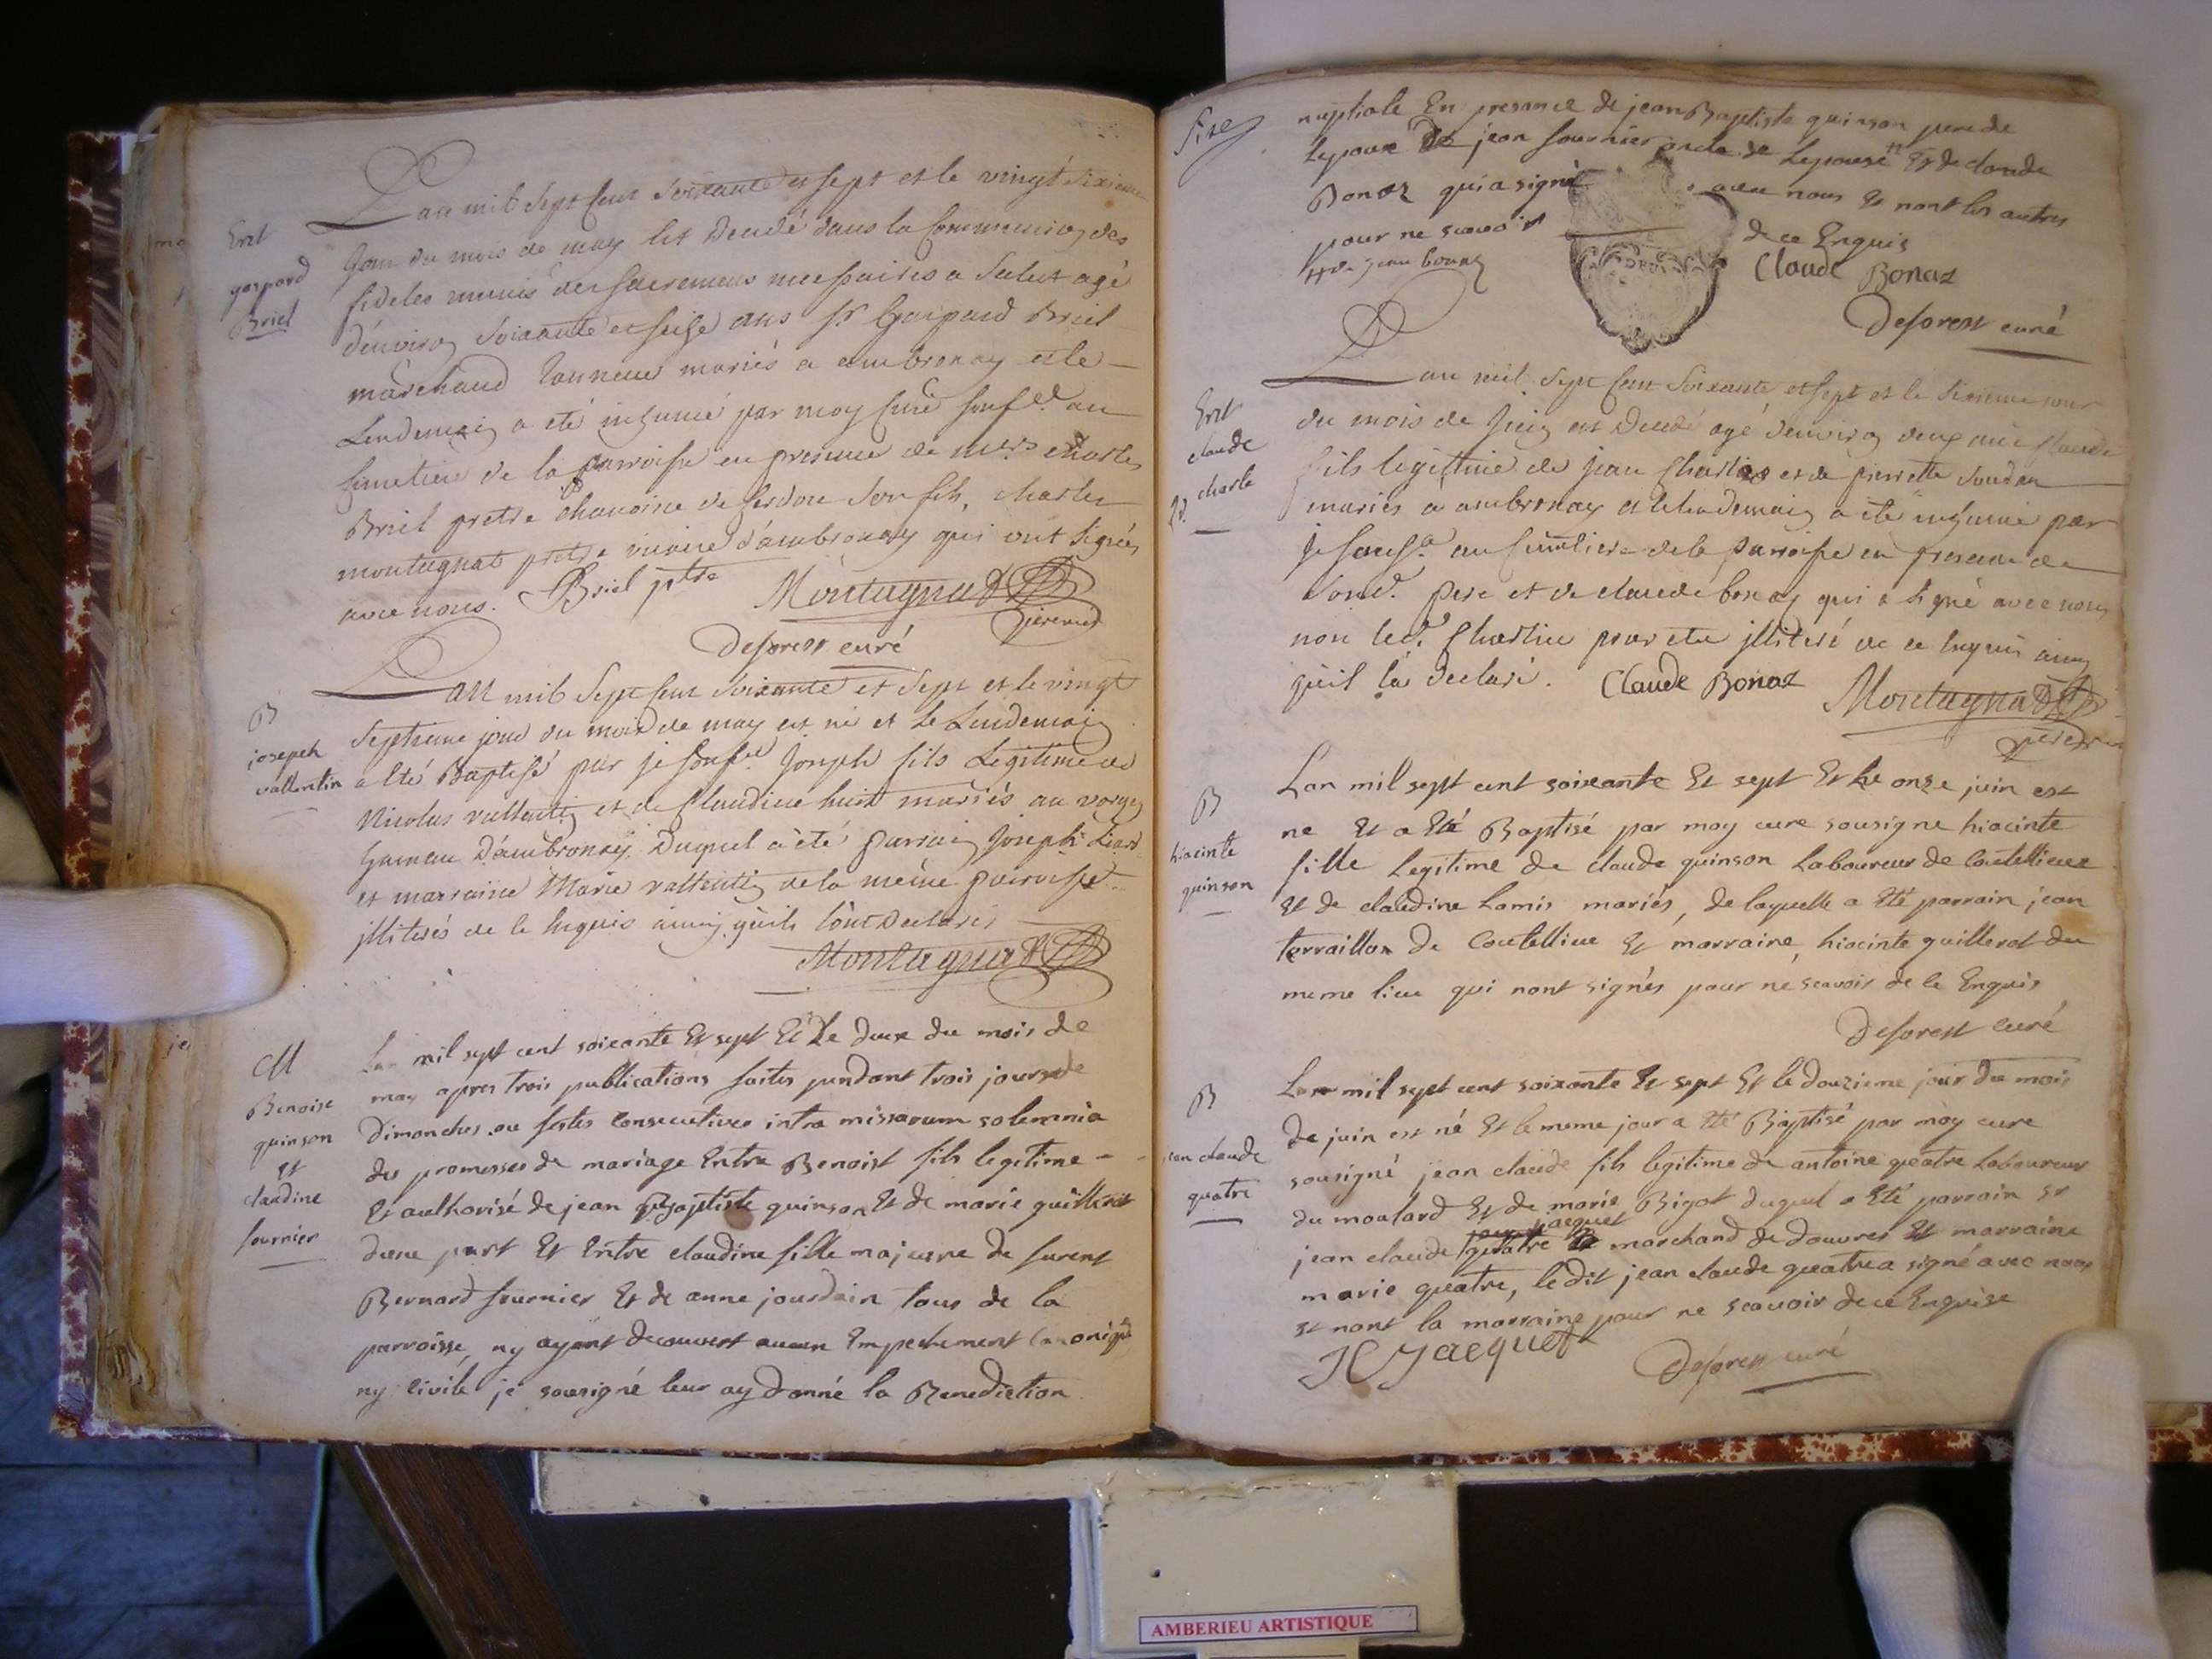 Ent
gaspard
Briel
L an mil Sept Cent Soixante et sept et le vingt sixieme
Jour du mois de may est Decedé dans la Communion des
fideles munis des sacremens necessaires a Salut agé
d'environ Soixante et seize ans sr Gaspard Briel
marchand Tanneur mariés a ambronay et le
Lendemain a eté inhumé par moy Curé souse. au
Cimetiere de la parroisse en presence de mers Charles
Briel pretre chanoine de son fils, Charles
montagnat pretre vicaire d'ambronay qui ont signés
avec nous. Briel ptre Montagnat
Deforest curé
B
joseph
vallentin
L an mil Sept Cent Soixante et Sept et le vingt
Septieme jour du mois de may est né et le Lendemain
a Eté Baptisé par je souse. Joseph fils Legitime de
Nicolas vallentin et de Claudine huit mariés au
hameau D'ambronay. Duquel a été parrain Joseph
et marraine Marie vallentin de la même parroisse
jlliterés de ce Enquis ainsy qu'ils l'ont Declarés
Montagnat
M
Benoise
quinson
Et
claudine
fournier
Lan mil sept cent soixante Et sept Et Le douze du mois de
may apres trois publications faites pendant trois jours de
Dimanches ou festes consecutives intra missarum solemnia
des promesses de mariage Entre Benoist fils legitime
Et authorisé de jean Baptiste quinson Et de marie guillerot
dune part Et Entre claudine fille majeure de furent
Bernard fournier Et de anne jourdain tous de la
parroisse, ny ayant decouvert aucun Empechement Canonique
ny civile je sousigné leur ay donné la Benediction
nuptiale En presance de jean Baptiste quinson pere de
Lepoux de jean fournier oncle de Lepouse Et de claude
Bonaz qui a signé avec nous Et nont les autres
pour ne scavoir de ce Enquis
Claude Bonaz
Deforest curé
Ent
claude
charle
L an mil Sept Cent Soixante et sept et le Sixieme jour
du mois de Juin est Decedé agé d'environ deux ans Claude
fils legitime de Jean Charles et de pierrette
mariés a ambronay et le Lendemain a été inhumé par
je souse. au Cimetiere de la parroisse en presence de
pere et de claude bonaz qui a signé avec nous
non led. pour etre jlliteré de ce Enquis ainsy
qu'il la declaré. Claude Bonaz Montagnat
B
hiacinte
quinson
Lan mil sept cent soixante Et sept Et Le onze juin est
ne Et a Eté Baptisé par moy cure sousigne hiacinte
fille Legitime de claude quinson Laboureur de Coutellieue
Et de claudine Lamis mariés, de laquelle a Eté parrain jean
terraillon de Coutellieue Et marraine, hiacinte guillerot du
meme lieu qui nont signés pour ne scavoir de ce Enquis
Deforest curé
B
jean claude
quatre
Lan mil sept cent soixante Et sept Et le douzieme jour du mois
de juin est né Et le meme jour a Eté Baptisé par moy cure
sousigné jean claude fils legitime de antoine quatre Laboureur
du moulard Et de marie Bigot duquel a Eté parrain sr
jean claude quatre jacquet marchand de douvres Et marraine
marie quatre, le dit jean claude quatre a signé avec nous
Et nont la marraine pour ne scavoir de ce Enquise
JC Jacquet
Deforest curé
AMBERIEU ARTISTIQUE